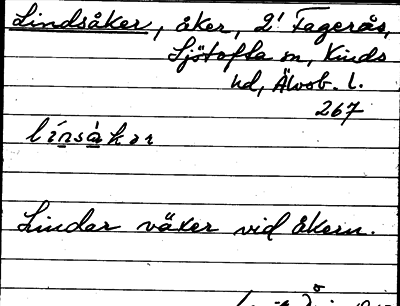 Lindsåker, åker, 2¹ Fagerås,
Sjötofta sn, Kinds
hd, Älvsb. l.
267
línsàkər
Lindar växer vid åkern.